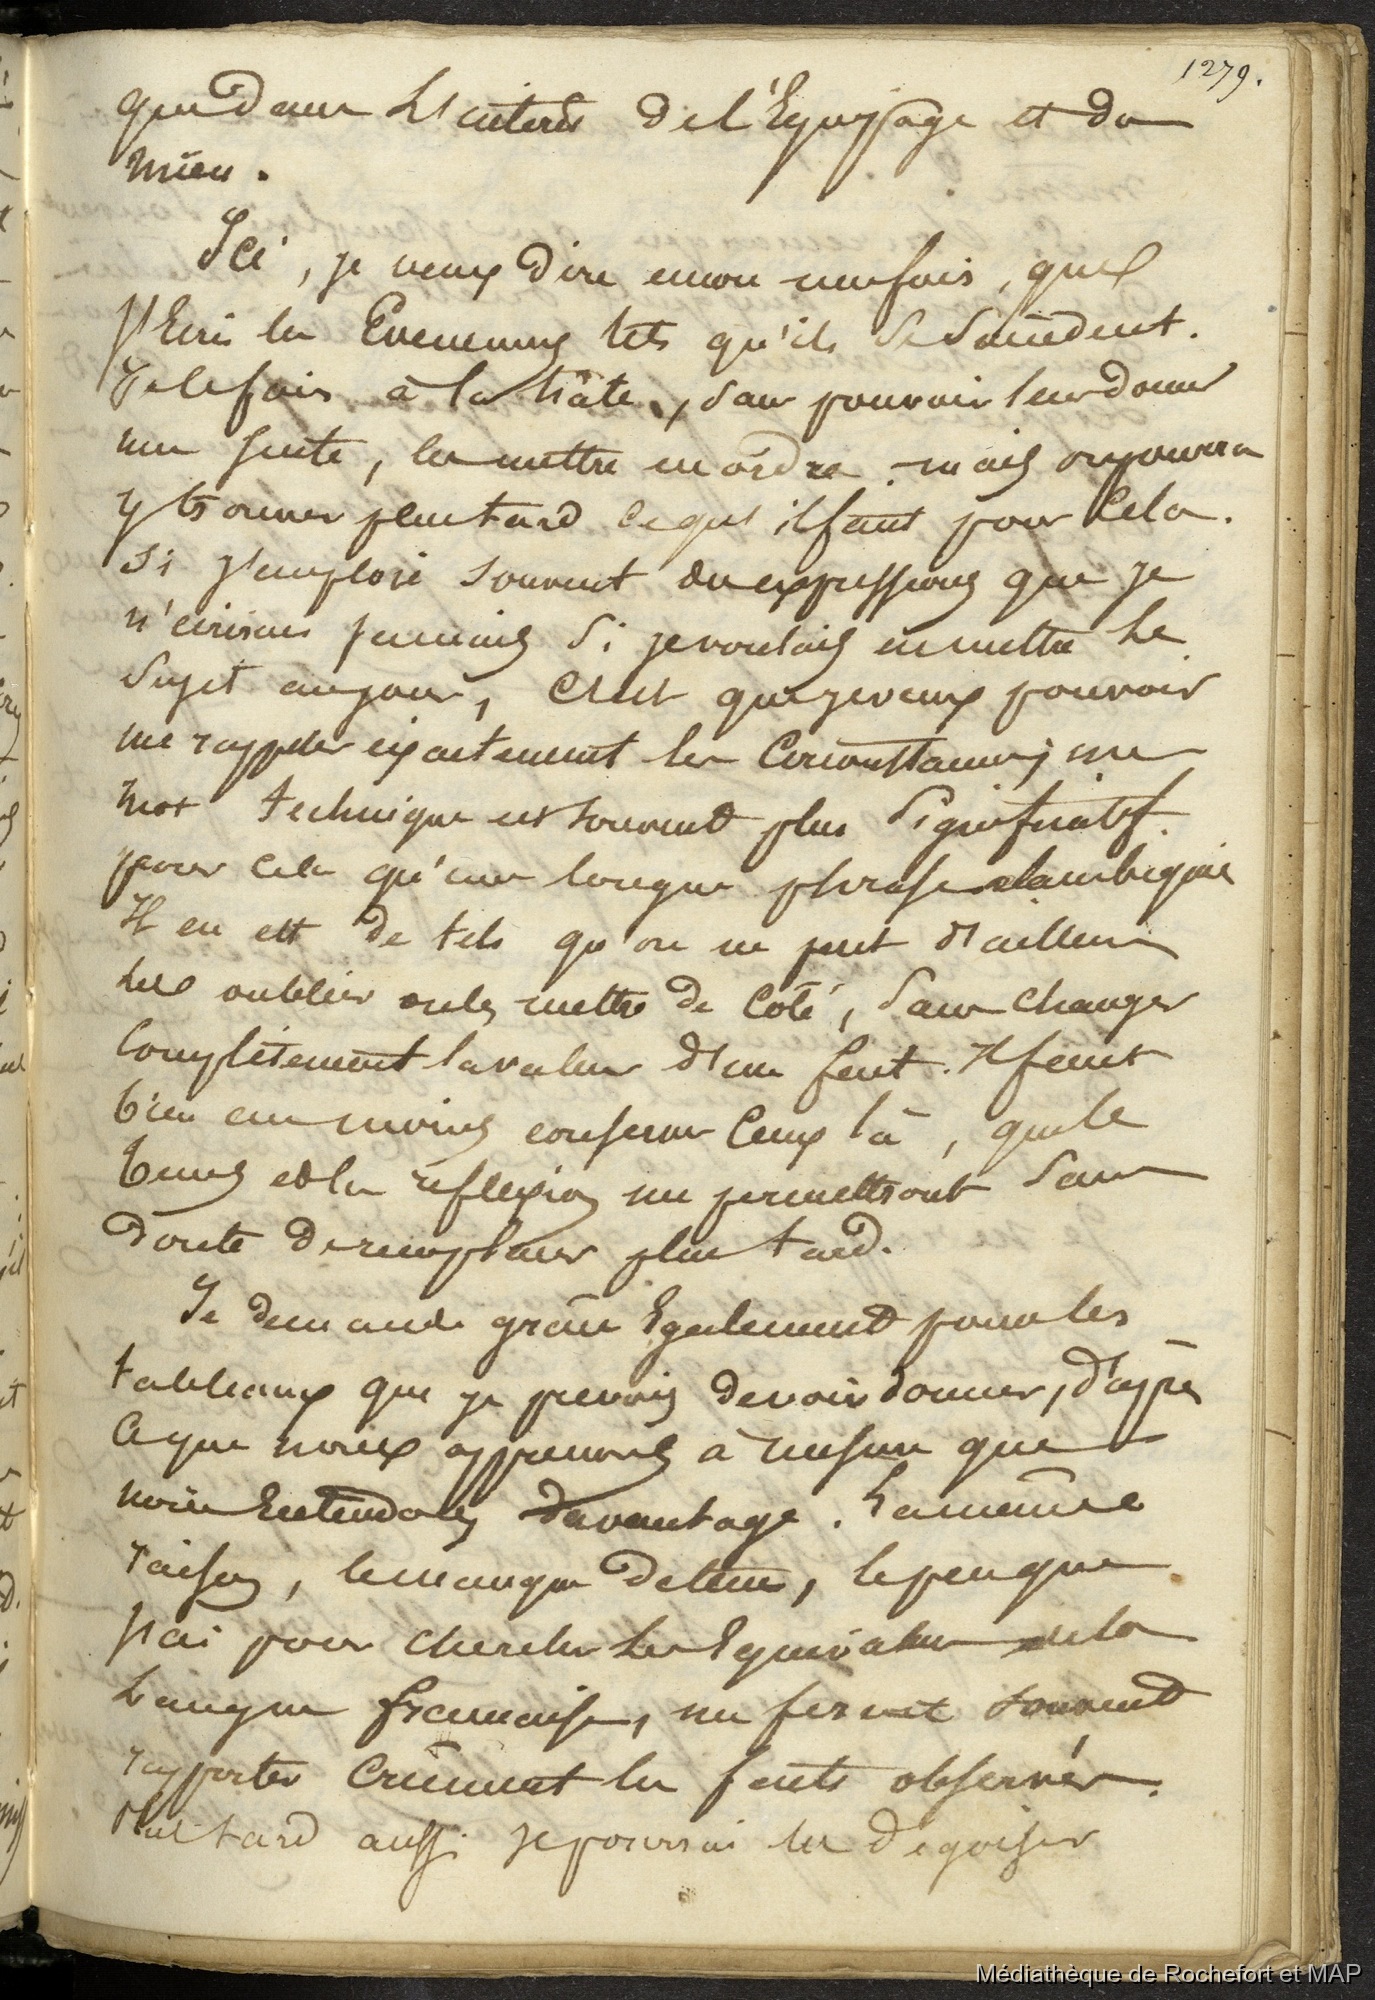 1279.
que dans l'intérêt de l'Equipage et du
mien.
Ici, je veux dire encore une fois, que
j'Ecris les Evenemens tels qu'ils se succèdent.
Je le fais à la hâte, sans pouvoir leur donner
une suite, les mettre en ordre. mais on pourra
y trouver plus tard ce qu'il faut pour cela.
Si j'emploie souvent des expressions que je
n'écrirais jamais si je voulais en mettre le
sujet au jour, C'est que je veux pouvoir
me rappeler exactement les Circonstances; un
mot technique est souvent plus significatif
pour cela qu'une longue phrase alambiquée
Il en est de tels qu'on ne peut d'ailleurs
les oublier ou les mettre de Côté, sans changer
Complètement la valeur d'un fait. Il faut
bien au moins conserver Ceux là, que le
tems et la reflexion me permettront sans
doute de remplacer plus tard.
Je demande grâce Egalement pour les
tableaux que je prevois devoir donner, d'après
Ce que nous apprenons à mesure que
nous Entendons davantage. La même
raison, le manque de tems, le peu que
j'ai pour chercher les Equivalens de la
Langue française, me feront souvent
rapporter Crûment les faits observés.
Plus tard aussi je pourrai les déguiser
Médiathèque de Rochefort et MAP